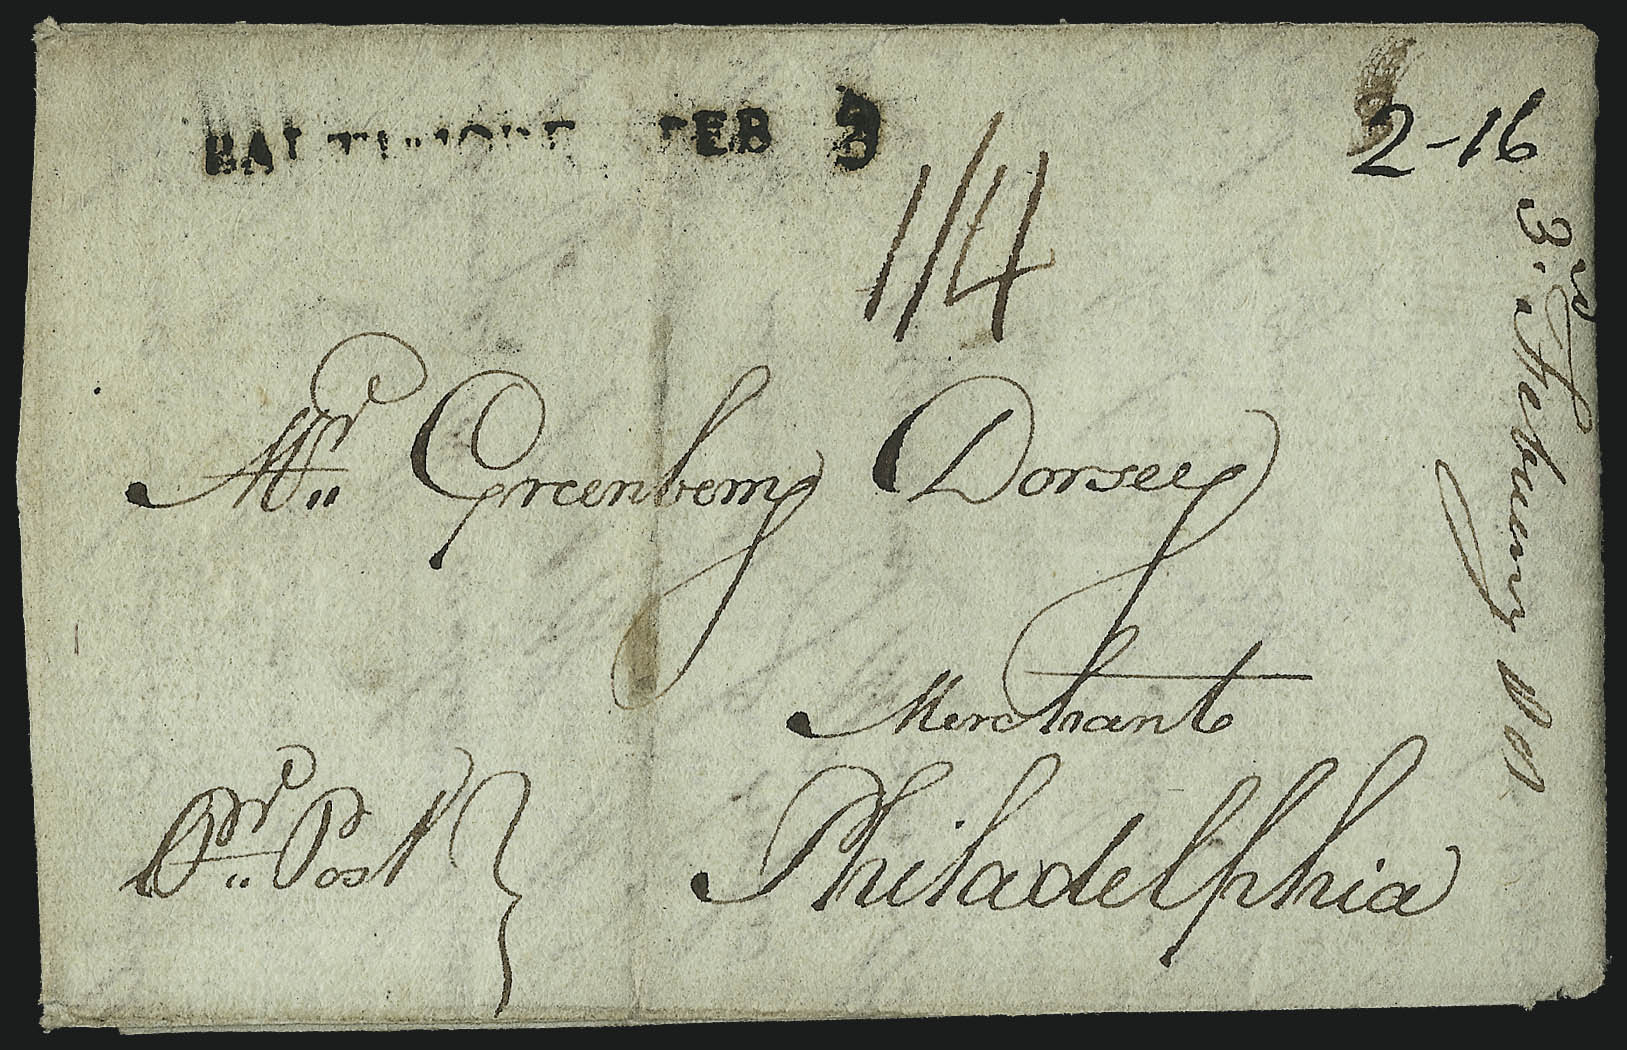 BALTIMORE FEB 3
1/4
2-16
3.rd February
Mr. Greenberry Dorsey
Merchant
Philadelphia
Pr. Post